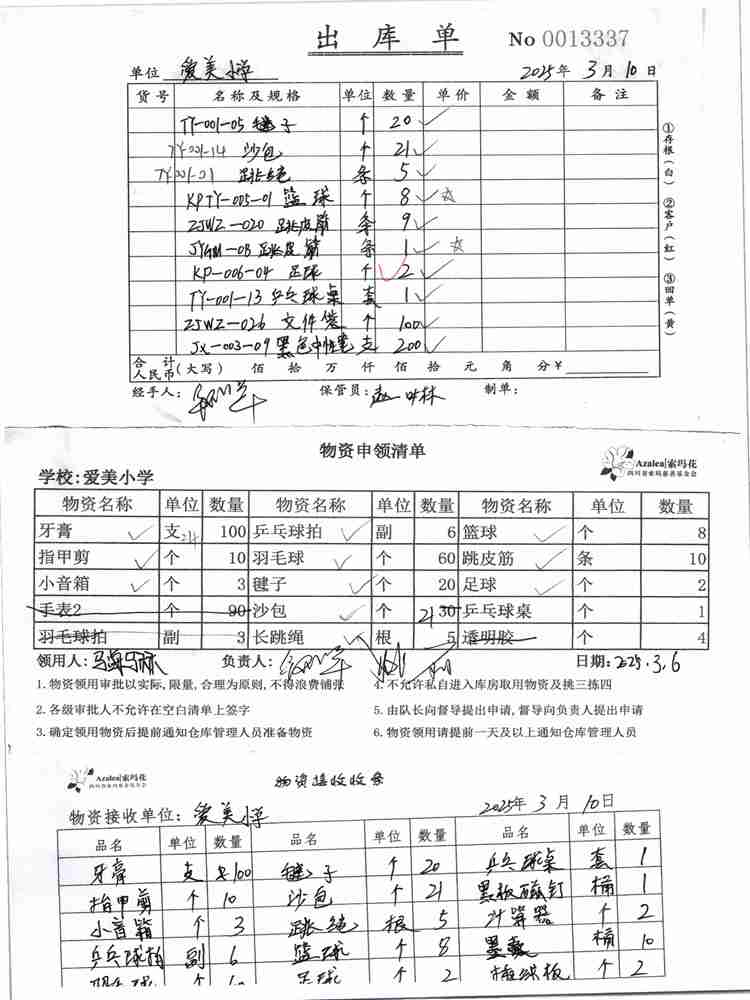 出库单 No 0013337
单位 爱美小学 2025年 3月 10日
货号 名称及规格 单位 数量 单价 金额 备注
TY-001-05 毽子 个 20
TY-001-14 沙包 个 21
TY-001-01 跳绳 条 5
KPTY-005-01 篮球 个 8
ZJWZ-020 跳皮筋 条 9
JYGM-08 跳皮筋 条 1
KP-006-04 足球 个 2
TY-001-13 乒乓球桌 套 1
ZJWZ-026 文件袋 个 100
JX-003-09 黑色中性笔 支 200
合计人民币(大写) 佰 拾 万 仟 佰 拾 元 角 分¥
经手人: 保管员: 制单:
①存根(白) ②客户(红) ③回单(黄)
物资申领清单
Azalea|索玛花
四川省索玛慈善基金会
学校:爱美小学
物资名称 单位 数量 物资名称 单位 数量 物资名称 单位 数量
牙膏 支 100 乒乓球拍 副 6 篮球 个 8
指甲剪 个 10 羽毛球 个 60 跳皮筋 条 10
小音箱 个 3 毽子 个 20 足球 个 2
手表2 个 90 沙包 个 21 30 乒乓球桌 个 1
羽毛球拍 副 3 长跳绳 根 5 透明胶 个 4
领用人: 负责人: 日期: 2025.3.6
1. 物资领用审批以实际,限量,合理为原则,不得浪费铺张 4. 不允许私自进入库房取用物资及挑三拣四
2. 各级审批人不允许在空白清单上签字 5. 由队长向督导提出申请,督导向负责人提出申请
3. 确定领用物资后提前通知仓库管理人员准备物资 6. 物资领用请提前一天及以上通知仓库管理人员
Azalea|索玛花
四川省索玛慈善基金会
物资接收收条
物资接收单位: 爱美小学 2025年 3月 10日
品名 单位 数量 品名 单位 数量 品名 单位 数量
牙膏 支 100 毽子 个 20 乒乓球桌 套 1
指甲剪 个 10 沙包 个 21 黑板磁钉 桶 1
小音箱 个 3 跳绳 根 5 计算器 个 2
乒乓球拍 副 6 篮球 个 8 桶 10
足球 个 2 个 2